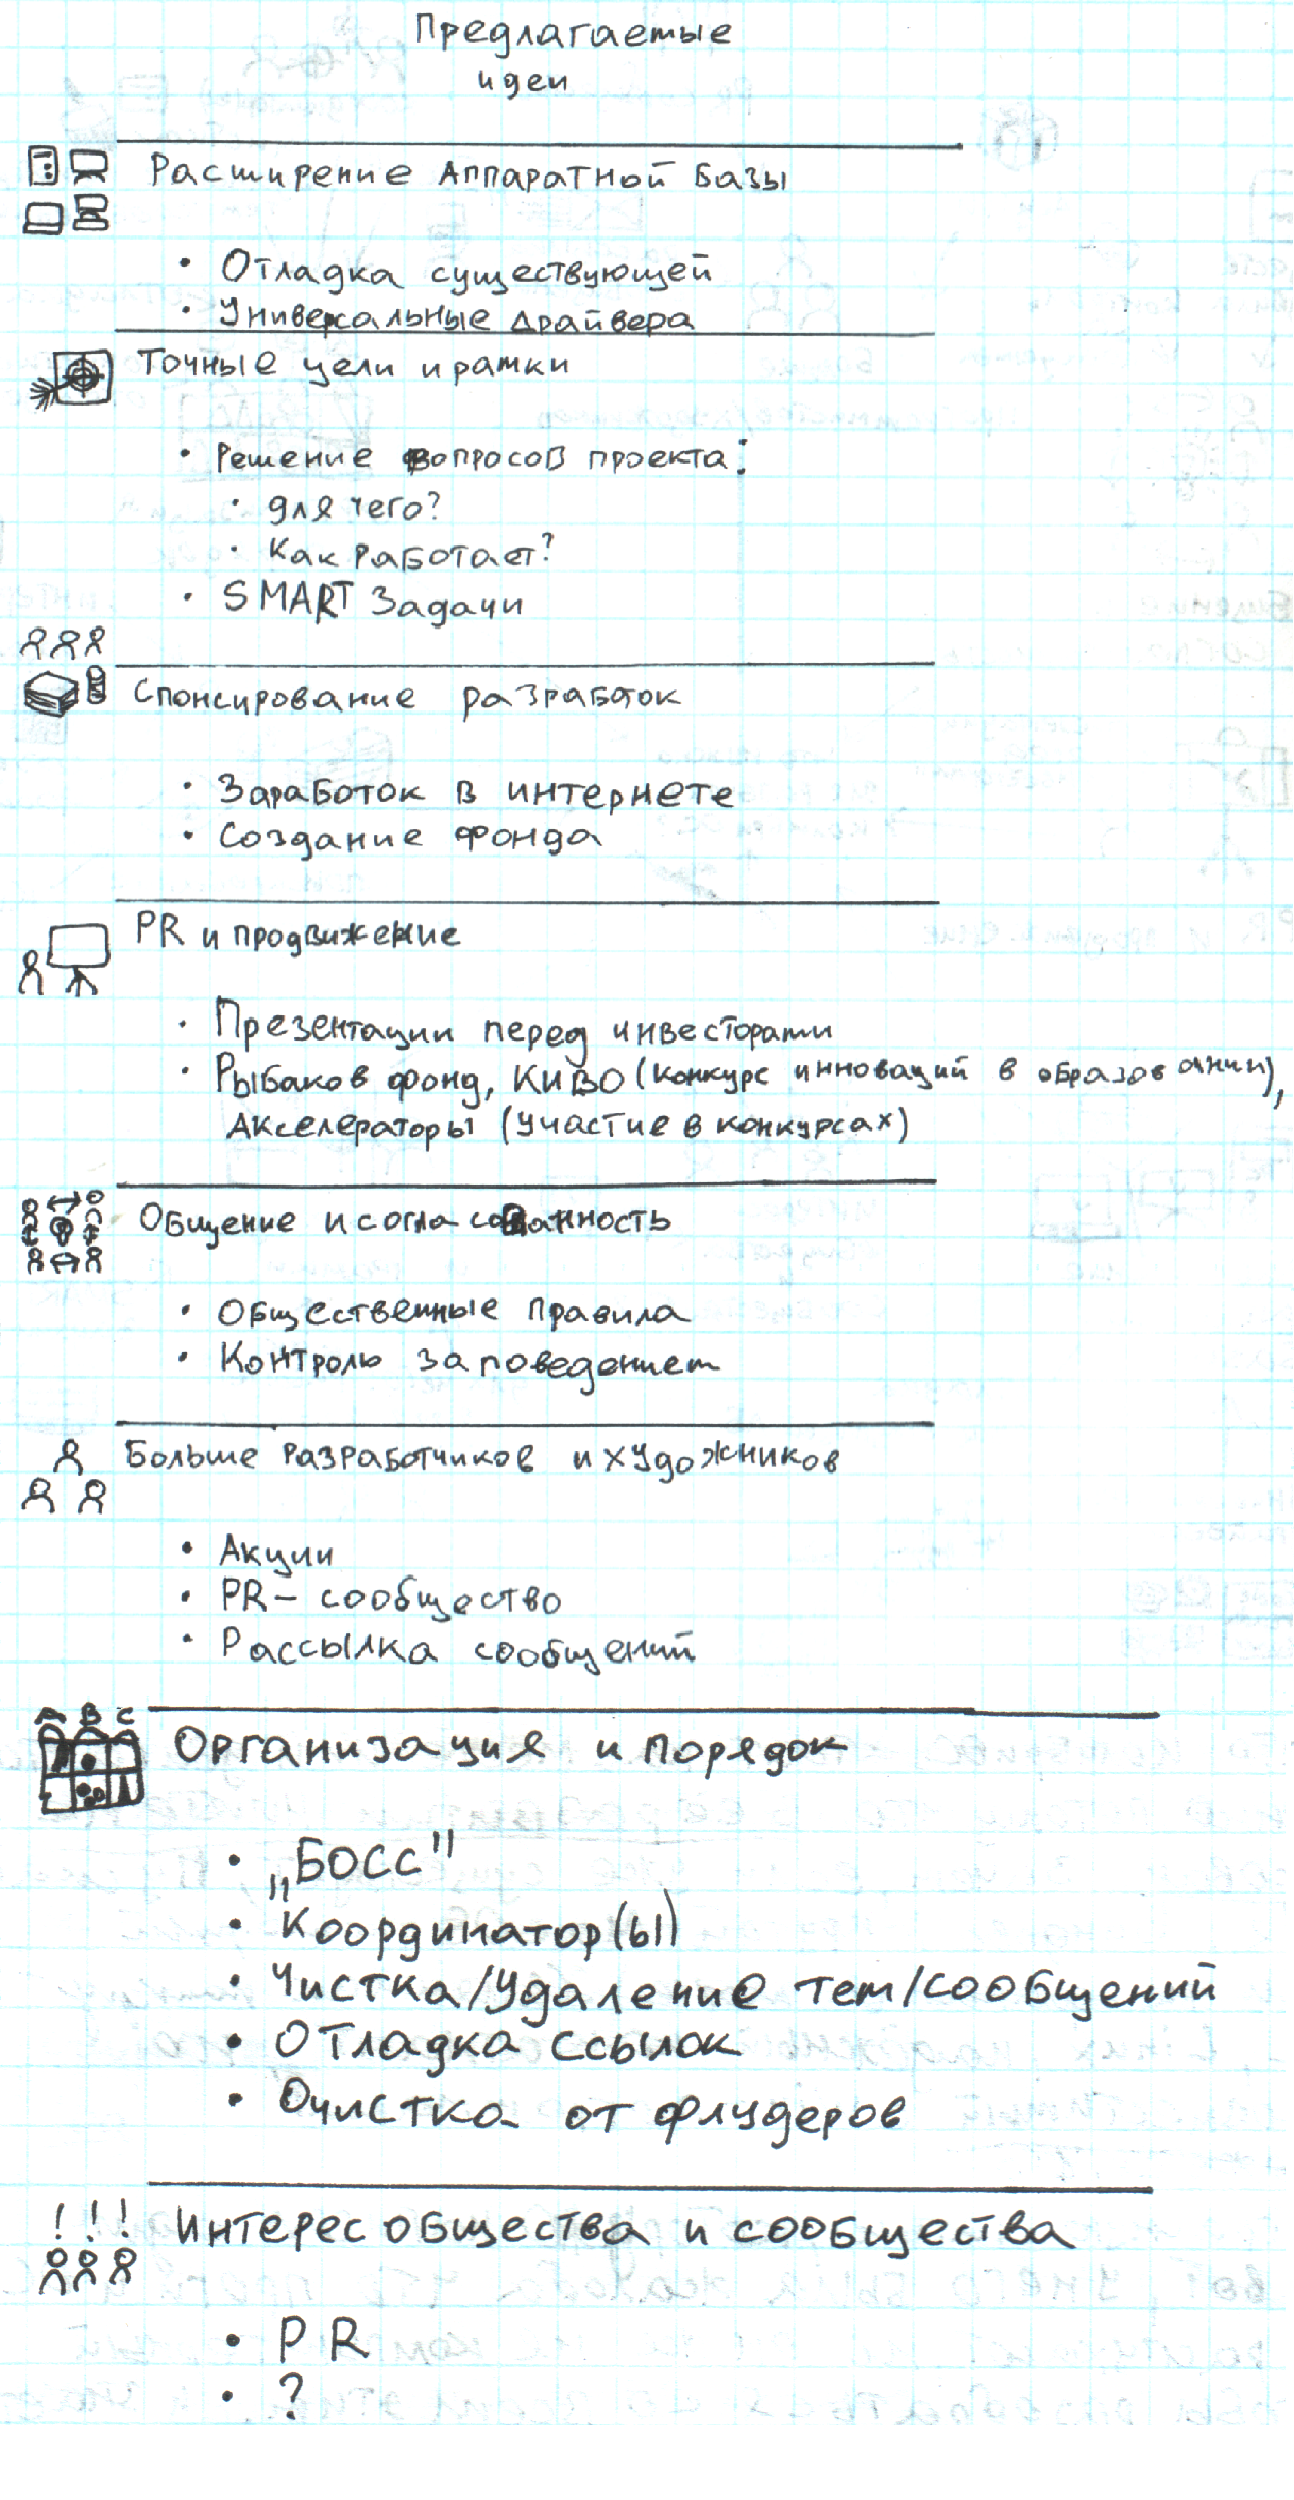 Предлагаемые
идеи
Расширение Аппаратной Базы
• Отладка существующей
• Универсальные драйвера
Точные цели и рамки
• Решение вопросов проекта:
• Для чего?
• Как работает?
• SMART Задачи
Спонсирование разработок
• Заработок в интернете
• Создание фонда
PR и продвижение
• Презентации перед инвесторами
• Рыбаков фонд, КИВО (конкурс инноваций в образовании),
Акселераторы (участие в конкурсах)
Общение и согласованность
• Общественные правила
• Контроль за поведением
Больше разработчиков и художников
• Акции
• PR - сообщество
• Рассылка сообщений
A B C
Организация и порядок
• „БОСС"
• Координатор(ы)
• Чистка/Удаление тем/сообщений
• Отладка ссылок
• Очистка от флудеров
! ! !
Интерес общества и сообщества
• PR
• ?